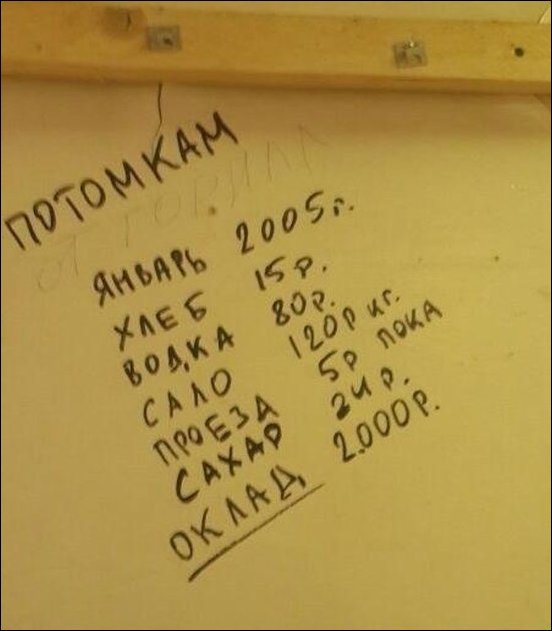 ПОТОМКАМ
ЯНВАРЬ 2005г.
ХЛЕБ 15р.
ВОДКА 80р.
САЛО 120р кг.
ПРОЕЗД 5р ПОКА
САХАР 24р.
ОКЛАД 2.000р.